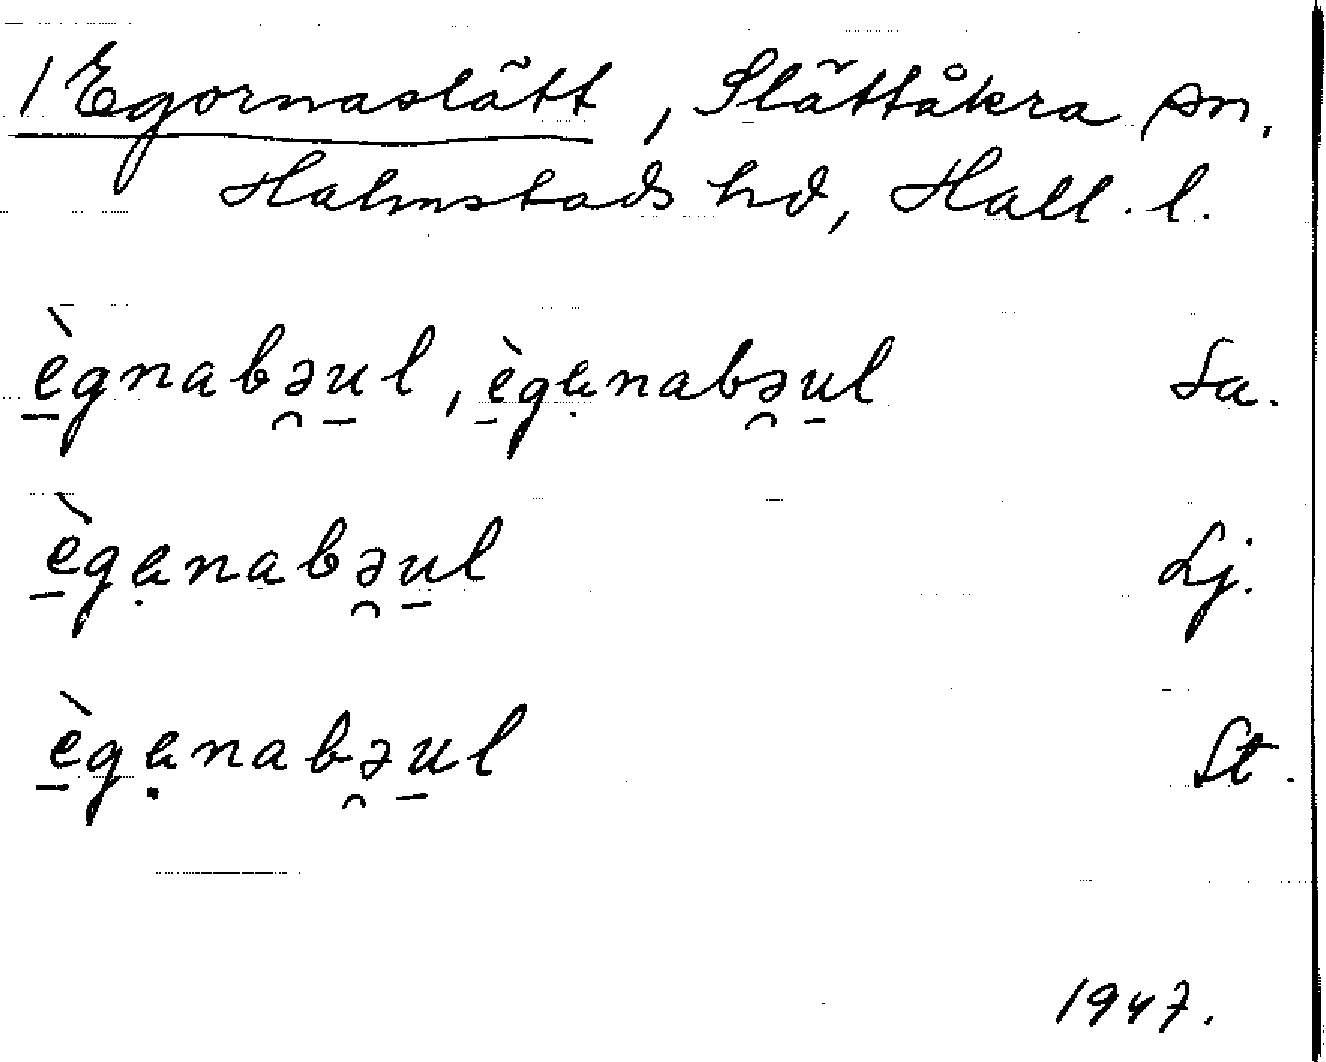 /Egornaslätt, Slättåkra sn.
Halmstads hd, Hall. l.
è̱gnabə̯u̱l, è̱gạnabə̯u̱l Sa.
è̱gạnabə̯u̱l Lj.
è̱gạnabə̯u̱l St.
1947.